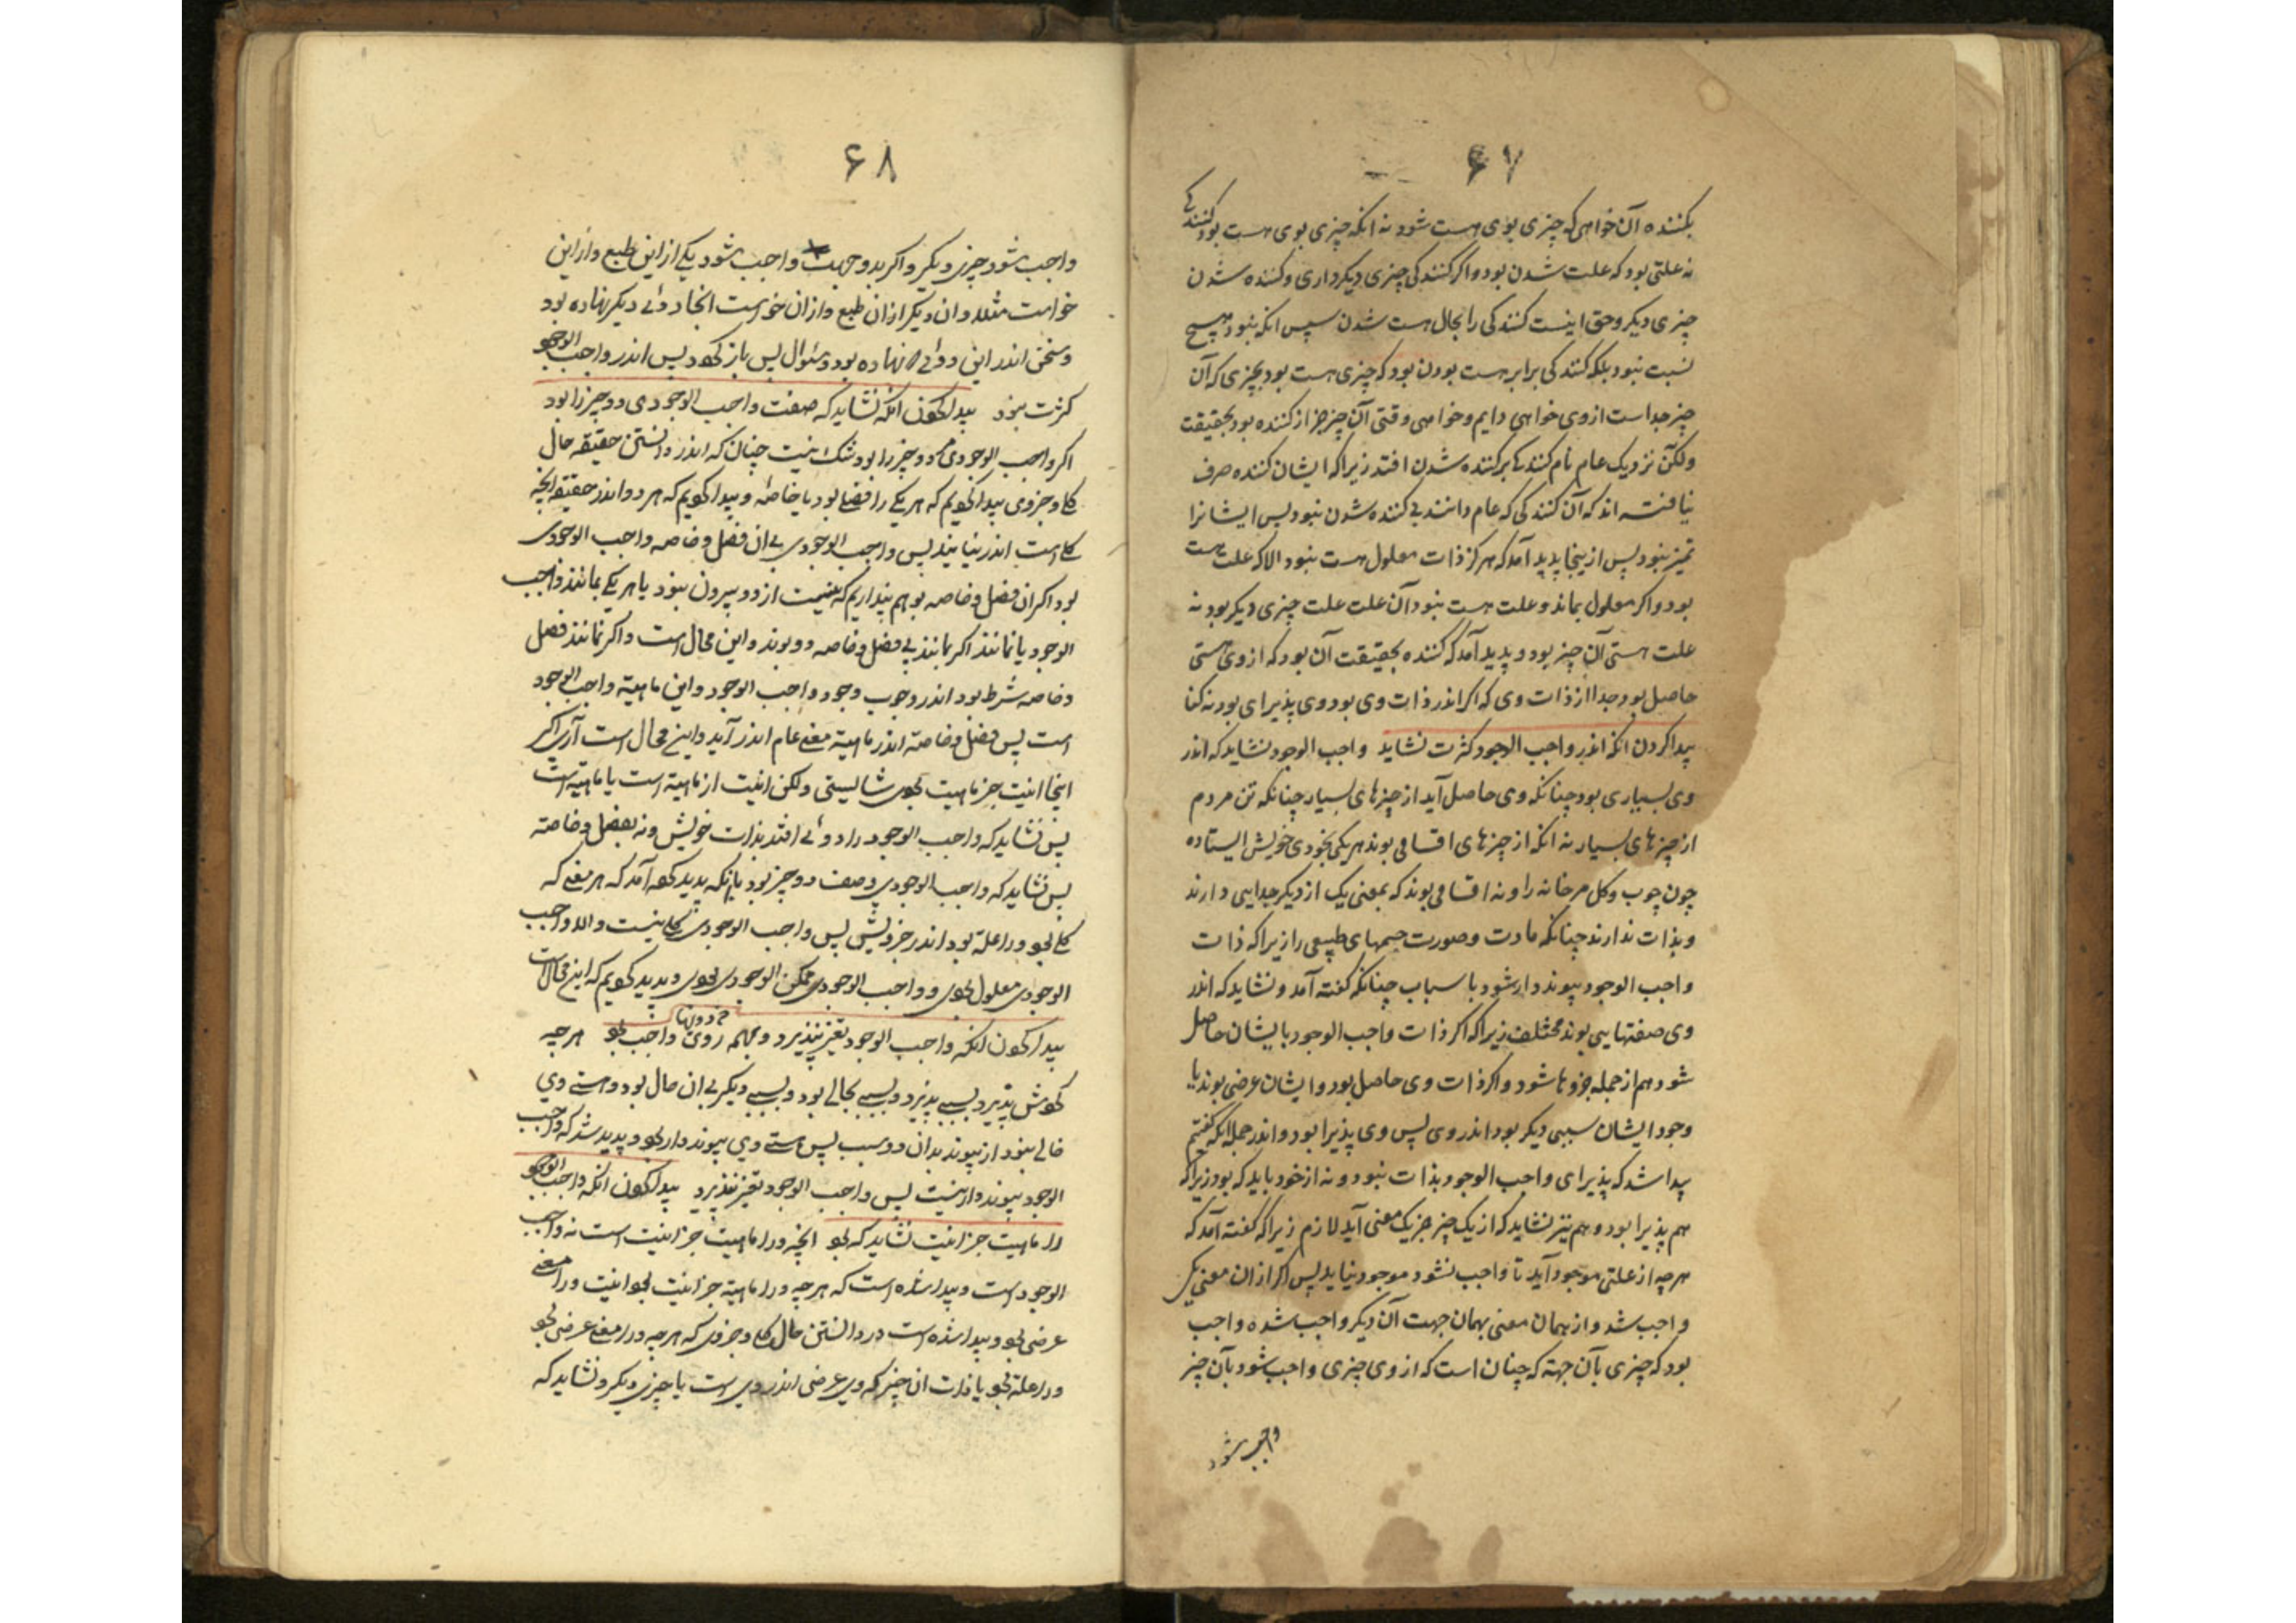 ۶۷
بکننده آن خواهی که چیزی بوی هست شود نه انکه چیزی بوی هست بود کنندکی
نه علتی بود که علت شدن بود و اگر کنندکی چیزی دیکر داری و کننده شدن
چیزی دیکر و حق اینست کنندکی را بحال هست شدن سپس انکه نبود هیچ
نسبت نبود بلکه کنندکی برابر هست بودن بود که چیزی هست بود بچیزی که آن
چیز جداست از وی خواهی دایم و خواهی وقتی آن چیز جز از کننده بود بحقیقت
ولکن نزدیک عام نام کنندکی بر کننده شدن افتد زیرا که ایشان کننده صرف
نیافته اند که آن کنندکی که عام دانند بی کننده شدن نبود پس ایشانرا
تمیز نبود پس از ینجا پدید آمد که هرکز ذات معلول هست نبود الا که علت هست
بود و اکر معلول بماند و علت هست نبود آن علت علت چیزی دیکر بود نه
علت هستی آن چیز بود و پدید آمد که کننده بحقیقت آن بود که از وی هستی
حاصل بود جدا از ذات وی که اکر اندر ذات وی بود وی پذیرای بود نه کنا
پیدا کردن انکه اندر واجب الوجود کثرت نشاید واجب الوجود نشاید که اندر
وی بسیاری بود چنانکه وی حاصل آید از چیزهای بسیار چنانکه تن مردم
از چیزهای بسیار نه انکه از چیزهای اقسامی بوند هر یکی بخودی خویش ایستاده
چون چوب و کل مر خانه را و نه اقسامی بوند که بمعنی یک از دیکر جدایی دارند
و بذات ندارند چنانکه مادت و صورت جسمهای طبیعی را زیرا که ذات
واجب الوجود پیونددار شود با سباب چنانکه کفته آمد و نشاید که اندر
وی صفتهایی بوند مختلف زیرا که اکر ذات واجب الوجود بایشان حاصل
شود هم از جمله جزوها شود و اکر ذات وی حاصل بود و ایشان عرضی بوند یا
وجود ایشان سببی دیکر بود اندر وی پس وی پذیرا بود و اندر جمله انکه کفتیم
پیدا شد که پذیرای واجب الوجود بذات نبود و نه از خود باید که بود زیرا که
هم پذیرا بود و هم نیز نشاید که از یک چیز جز یک معنی آید لازم زیرا که کفته آمد که
هر چه از علتی موجود آید تا واجب نشود موجود نیاید پس اکر از ان معنی یکی
واجب شد و از همان معنی بهمان جهت آن دیکر واجب شده واجب
بود که چیزی بآن جهة که چنان است که از وی چیزی واجب شود بآن چیز
واجب شود
۶۸
واجب شود چیزی دیکر و اکر بدو جهت واجب شود یکی از این طبع و از این
خواست مثلا و ان دیکر از ان طبع و از ان خواست انجا دوئی دیکر نهاده بود
و سخن اندر این دوئی نهاده بود و سئوال پس باز کردد پس اندر واجب الوجود
کثرت نبود پیدا کردن انکه نشاید که صفت واجب الوجودی دو چیز را بود
اکر واجب الوجودی دو چیز را بود شک نیست چنان که اندر دانستن حقیقه حال
کلی و جزوی پیدا کردیم که هر یکی را فصلی بود یا خاصه و پیدا کردیم که هر دو اندر حقیقه انچه
کلی است اندر نیایند پس واجب الوجودی بی ان فصل و خاصه واجب الوجودی
بود اکر ان فصل و خاصه بوهم پنداریم که نیست از دو بیرون نبود یا هر یکی بمانند واجب
الوجود یا نمانند اکر بمانند بی فصل و خاصه دو بوند و این محال است و اکر نمانند فصل
و خاصه شرط بود اندر وجوب وجود واجب الوجود و این ماهیة واجب الوجود
است پس فصل و خاصه اندر ماهیة معنی عام اندر آید و این محال است آری اکر
اینجا انیت جز ماهیت بودی شایستی ولکن انیت از ماهیة است یا ماهیة است
پس نشاید که واجب الوجود را دوئی افتد بذات خویش و نه بفصل و خاصه
پس نشاید که واجب الوجودی وصف دو چیز بود بازنکه پدید کرده آمد که هر معنی که
کلی بود ورا علة بود اندر جزویش پس واجب الوجودی کلی نیست و الا واجب
الوجودی معلول بودی و واجب الوجودی ممکن الوجودی بودی و پدید کردیم که این محال است
پیدا کردن انکه واجب الوجود تغیر نپذیرد و بهمه رویها واجب بود هر چه
کردش پذیرد بسببی پذیرد و بسببی بحالی بود و بسببی دیکر بی ان حال بود و هستی وی
خالی نبود از پیوند بدان دو سبب پس هستی وی پیونددار بود و پدید شد که واجب
الوجود پیونددار نیست پس واجب الوجود تغیر نپذیرد پیدا کردن انکه واجب الوجود
را ماهیت جز انیت نشاید که بود انچه ورا ماهیت جز انیت است نه واجب
الوجود است و پیدا شده است که هر چه ورا ماهیة جز انیت بود انیت ورا معنی
عرضی بود و پیدا شده است در دانستن حال کلی و جزوی که هر چه ورا معنی عرضی بود
ورا علة بود یا ذات ان چیز که وی عرضی اندر وی است یا چیزی دیکر و نشاید که